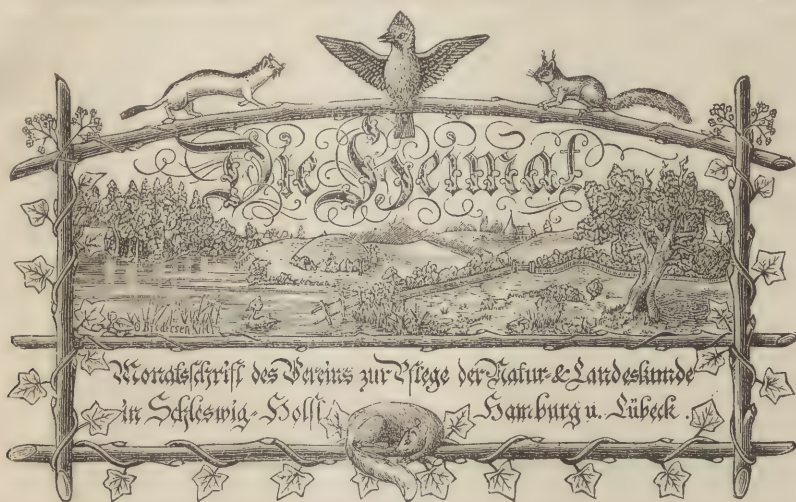 Die Heimat
Monatsschrift des Vereins zur Pflege der Natur- & Landeskunde
in Schleswig-Holst. Hamburg u. Lübeck.